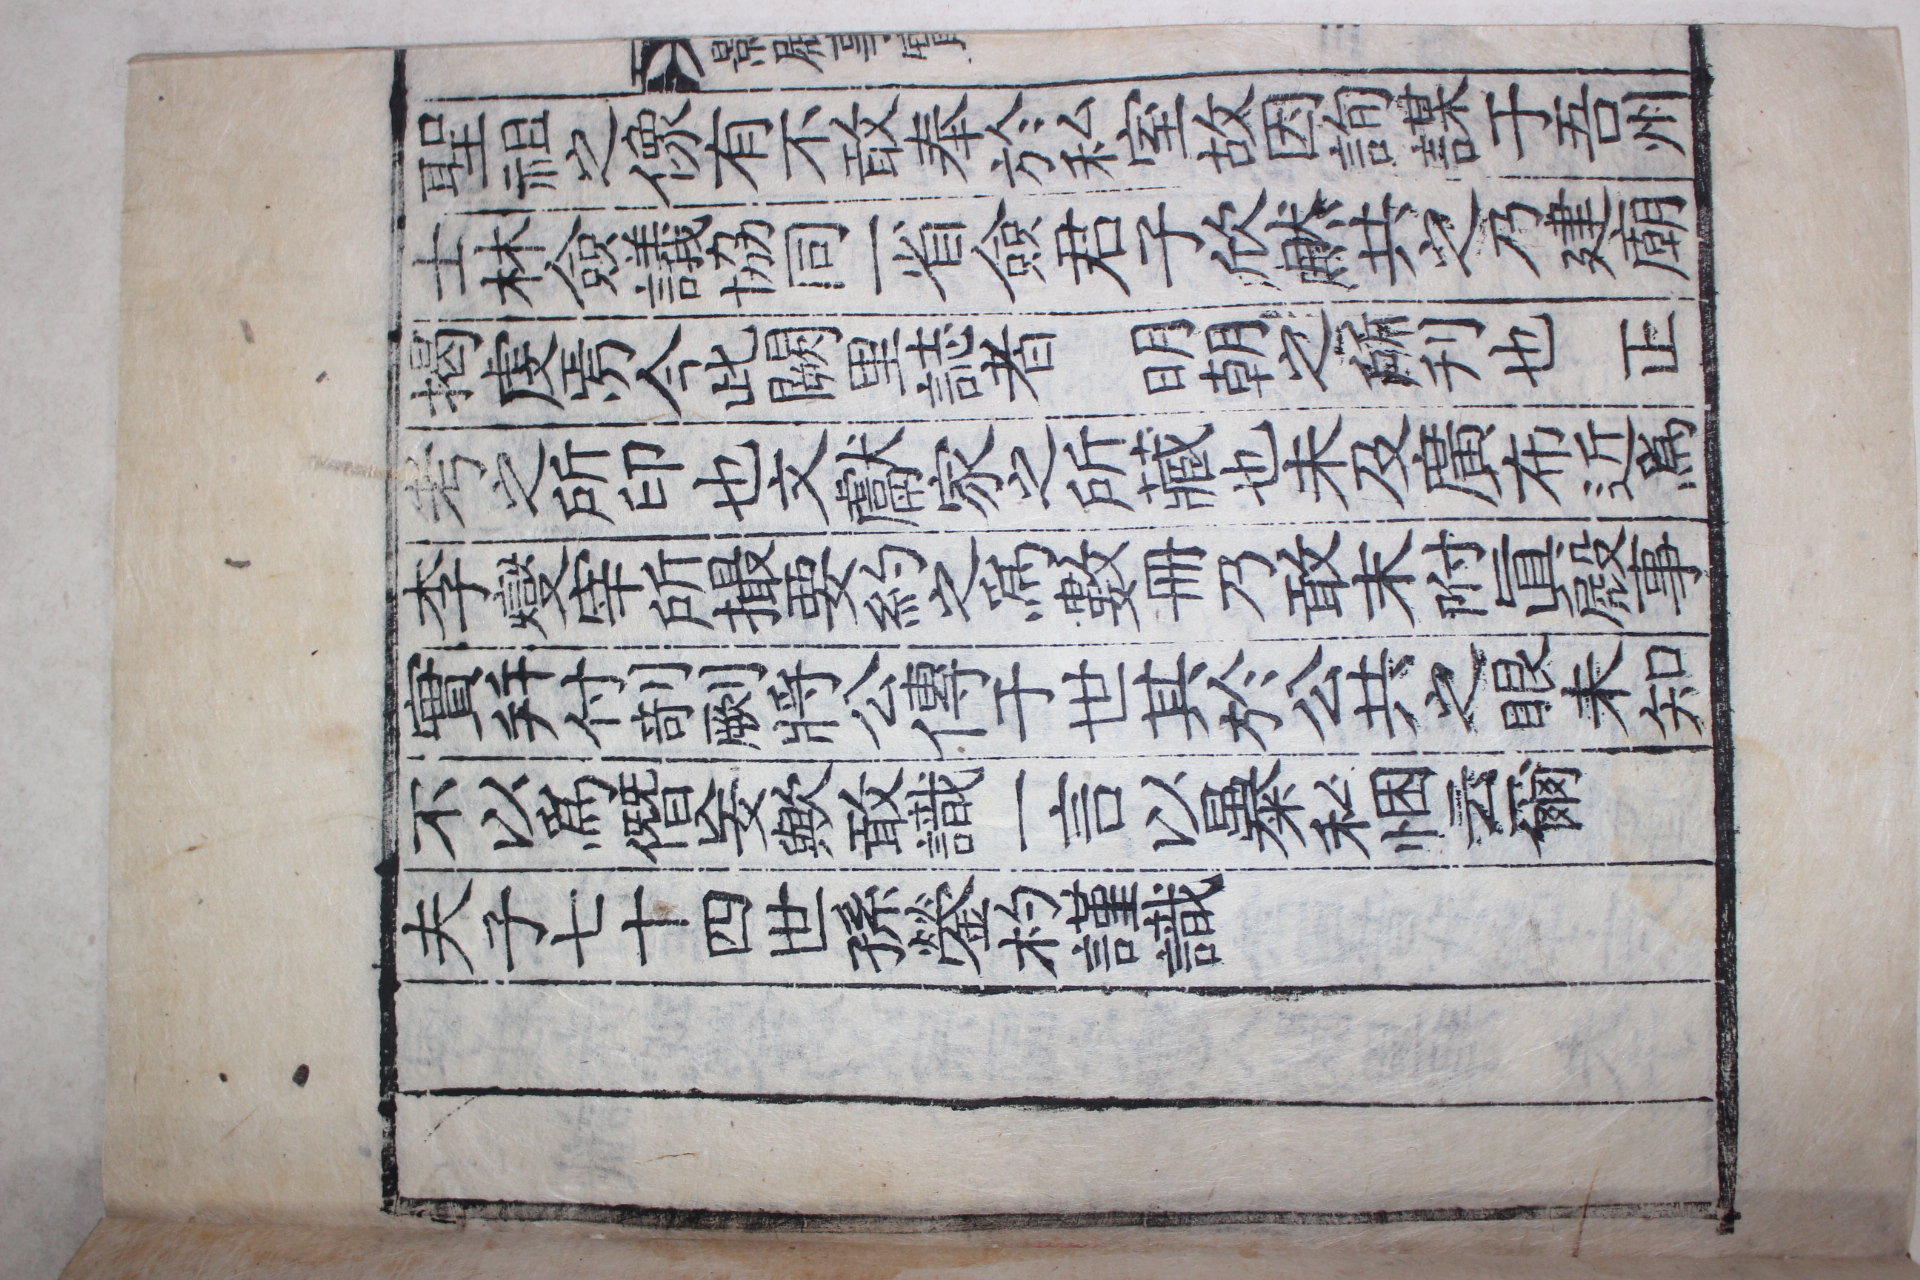 聖祖之像有不敢奉於私室故因詢謀于吾州
士林僉議協同一省僉君子欣然共之乃建廟
揭虔焉今此闕里誌者 明朝之刊也 正
考之所印也文獻家之所藏也未及廣布近爲
李燮宰所撮要約之爲數冊乃敢末附眞殿事
實幷付剞劂將公傳于世其於公共之眼未知
不以爲僭妄歟敢識一言以暴私悃云爾
夫子七十四世孫鎣杓謹識